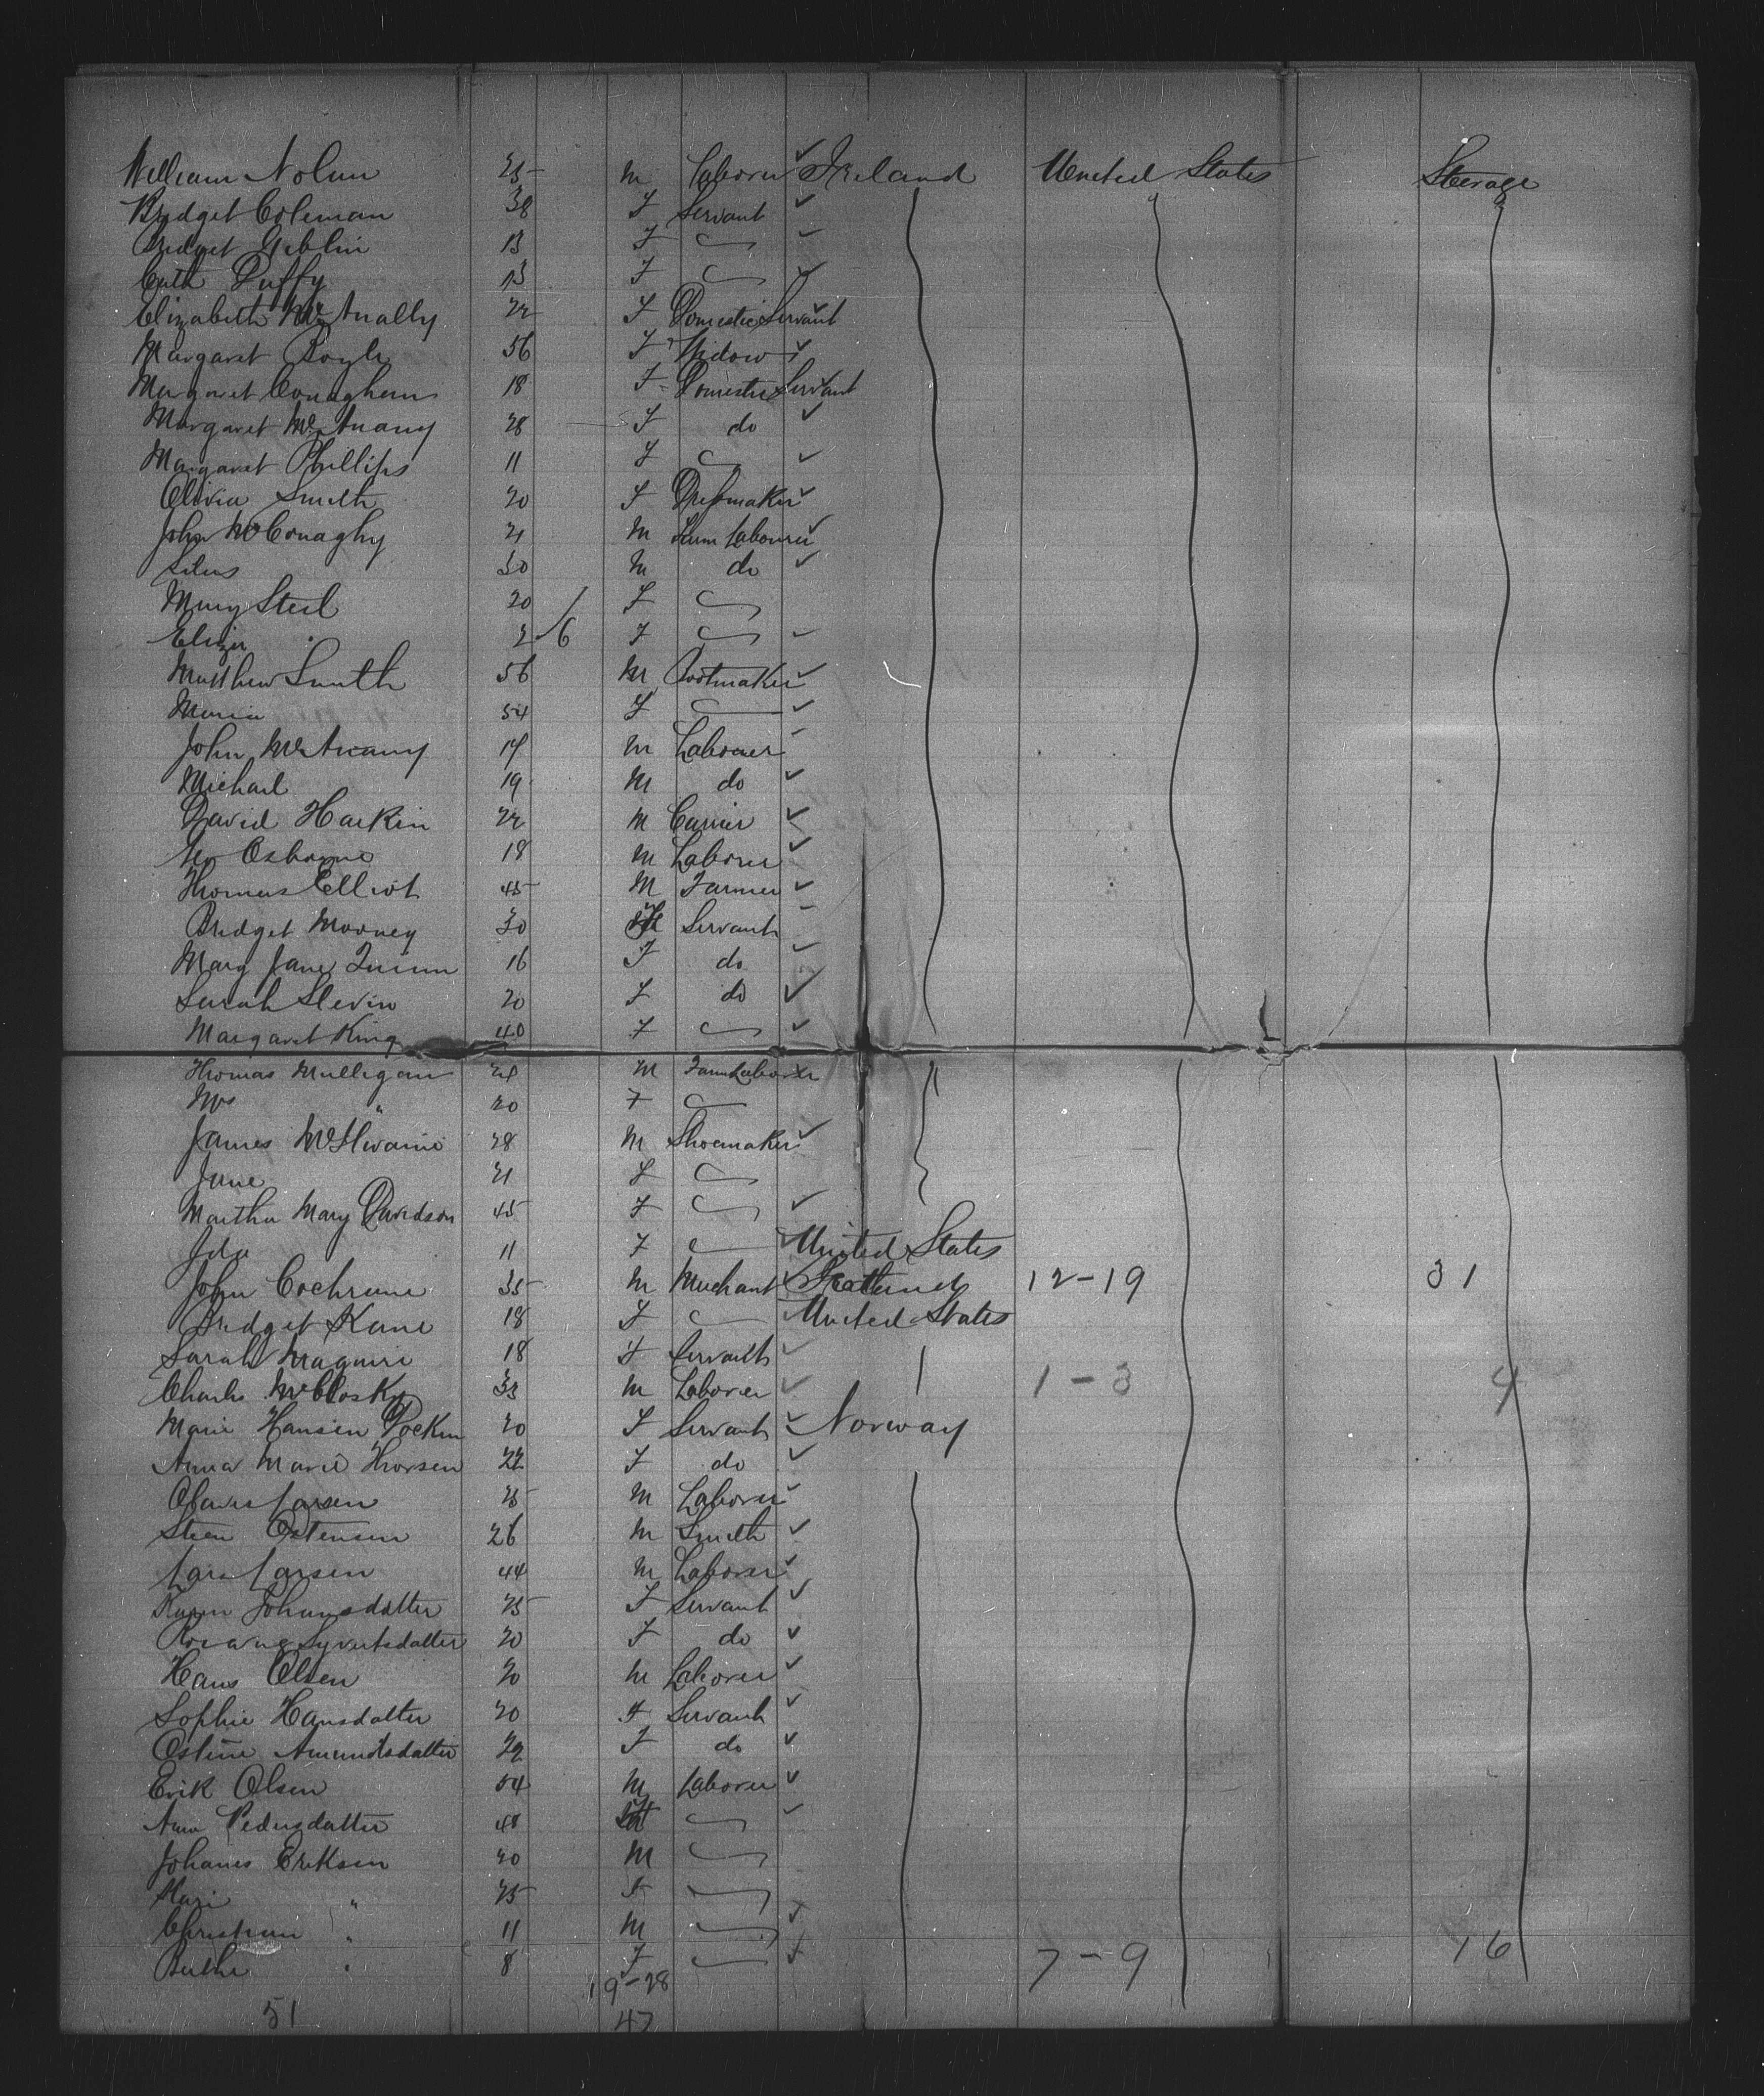 William Nolan 25 M Laborer Ireland United States Steerage
Bridget Coleman 38 F Servant
Bridget Giblin 13 F
Cath Duffy 13 F
Elizabeth McAnally 22 F Domestic Servant
Margaret Boyle 56 F Widow
Margaret Conaghan 18 F Domestic Servant
Margaret McAnany 28 F do
Margaret Phillips 11 F
Olivia Smith 20 F Dressmaker
John McConaghy 21 M Farm Labourer
Silas 30 M do
Mary Steel 20 F
Eliza " 2/6 F
Matthew Smith 56 M Bootmaker
Maria 54 F
John McAnany 14 M Laborer
Michael 19 M do
David Harkin 22 M Currier
Osborne 18 M Laborer
Thomas Elliot 45 M Farmer
Bridget Mooney 30 F Servant
Mary Jane Quinn 16 F do
Sarah Slevin 20 F do
Margaret King 40 F
Thomas Mulligan 24 M Farm Laborer
Mrs " 20 F
James McIlwaine 28 M Shoemaker
Jane 21 F
Martha Mary Davidson 45 F
Ida 11 F United States
John Cochrane 35 M Merchant 12-19 31
Bridget Kane 18 F United States
Sarah Maguire 18 F Servant
Charles McClosky 33 M Laborer 1-3 4
Marie Hansen 20 F Servant Norway
Anna Marie Thorsen 22 F do
Olaves Larsen 25 M Laborer
Steen Ostensen 26 M Smith
Lars Larsen 44 M Laborer
Karen Johansdatter 25 F Servant
Syvertsdatter 20 F do
Hans Olsen 20 M Laborer
Sophie Hansdatter 20 F Servant
Ostine Amundsdatter 22 F do
Erik Olsen 54 M Laborer
Anna Pedersdatter 48 F
Johanes Eriksen 20 M
Mari " 25 F
Christian " 11 M
Berthe " 8 F 7-9 16
19-28
51 47